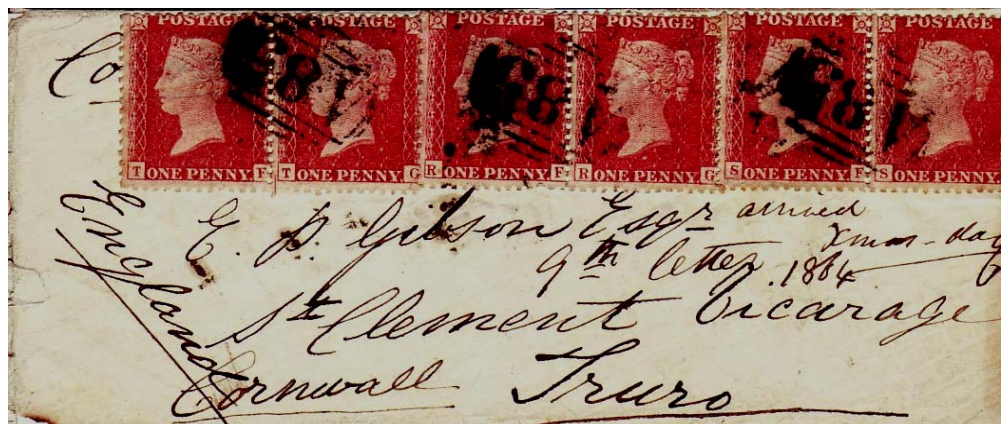 POSTAGE POSTAGE POSTAGE POSTAGE POSTAGE POSTAGE
T ONE PENNY F T ONE PENNY G R ONE PENNY F R ONE PENNY G S ONE PENNY F S ONE PENNY
England
C. P. Gibson Esqr arrived
Xmas-day
9th letter 1864
St Clement Vicarage
Cornwall Truro